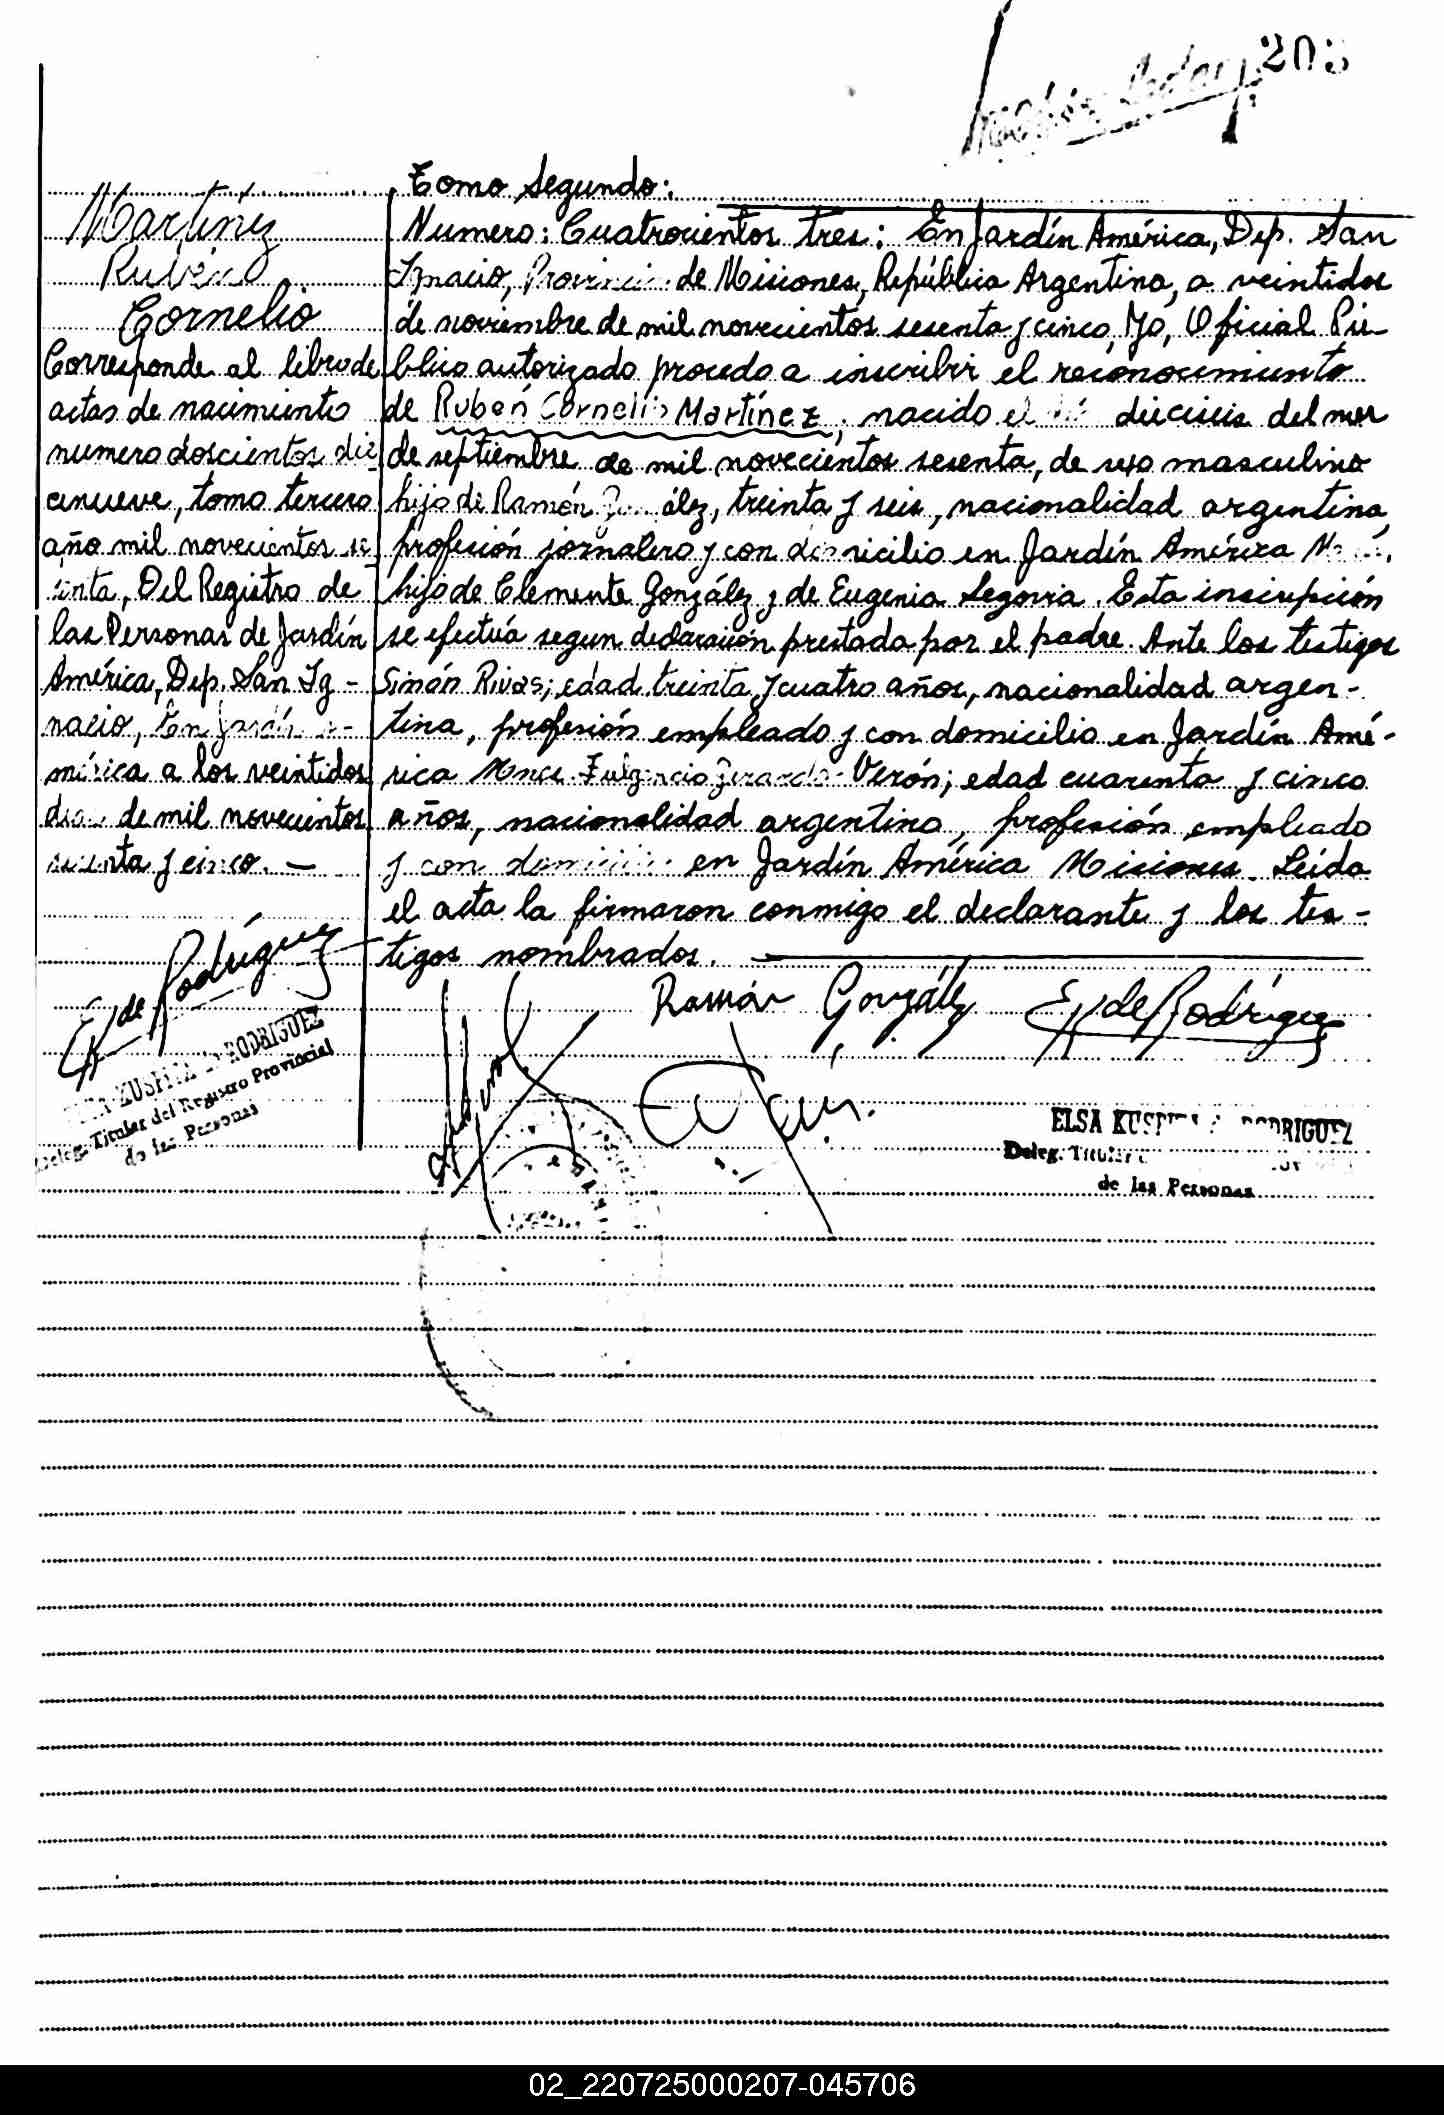 203
Tomo Segundo:
Martínez
Rubén
Cornelio
Corresponde al libro de
actas de nacimiento
numero doscientos die
cinueve, tomo tercero
año mil novecientos se
senta, Del Registro de
las Personas de Jardín
América, Dep. San Ig-
nacio, En Jardín A-
mérica a los veintidos
dias de mil novecientos
sesenta y cinco. —
Numero: Cuatrocientos tres: En Jardín América, Dep. San
Ignacio, Provincia de Misiones, República Argentina, a veintidos
de noviembre de mil novecientos sesenta y cinco, Yo, Oficial Pú-
blico autorizado procedo a inscribir el reconocimiento
de Rubén Cornelio Martínez, nacido el día dieciseis del mes
de septiembre de mil novecientos sesenta, de sexo masculino
hijo de Ramón González, treinta y seis, nacionalidad argentina,
profesión jornalero y con domicilio en Jardín América
hijo de Clemente González y de Eugenia Segovia. Esta inscripción
se efectúa segun declaración prestada por el padre. Ante los testigos
Simón Rivas; edad treinta y cuatro años, nacionalidad argen-
tina, profesión empleado y con domicilio en Jardín Amé-
rica Mnes. Fulgencio Gerardo Verón; edad cuarenta y cinco
años, nacionalidad argentina, profesión empleado
y con domicilio en Jardín América Misiones. Leida
el acta la firmaron conmigo el declarante y los tes-
tigos nombrados.
EK de Rodríguez
KUSPITA de RODRIGUEZ
Deleg. Titular del Registro Provincial
de las Personas
Ramón González
EK de Rodríguez
ELSA KUSPITA de RODRIGUEZ
Deleg. Titular
de las Personas
02_220725000207-045706